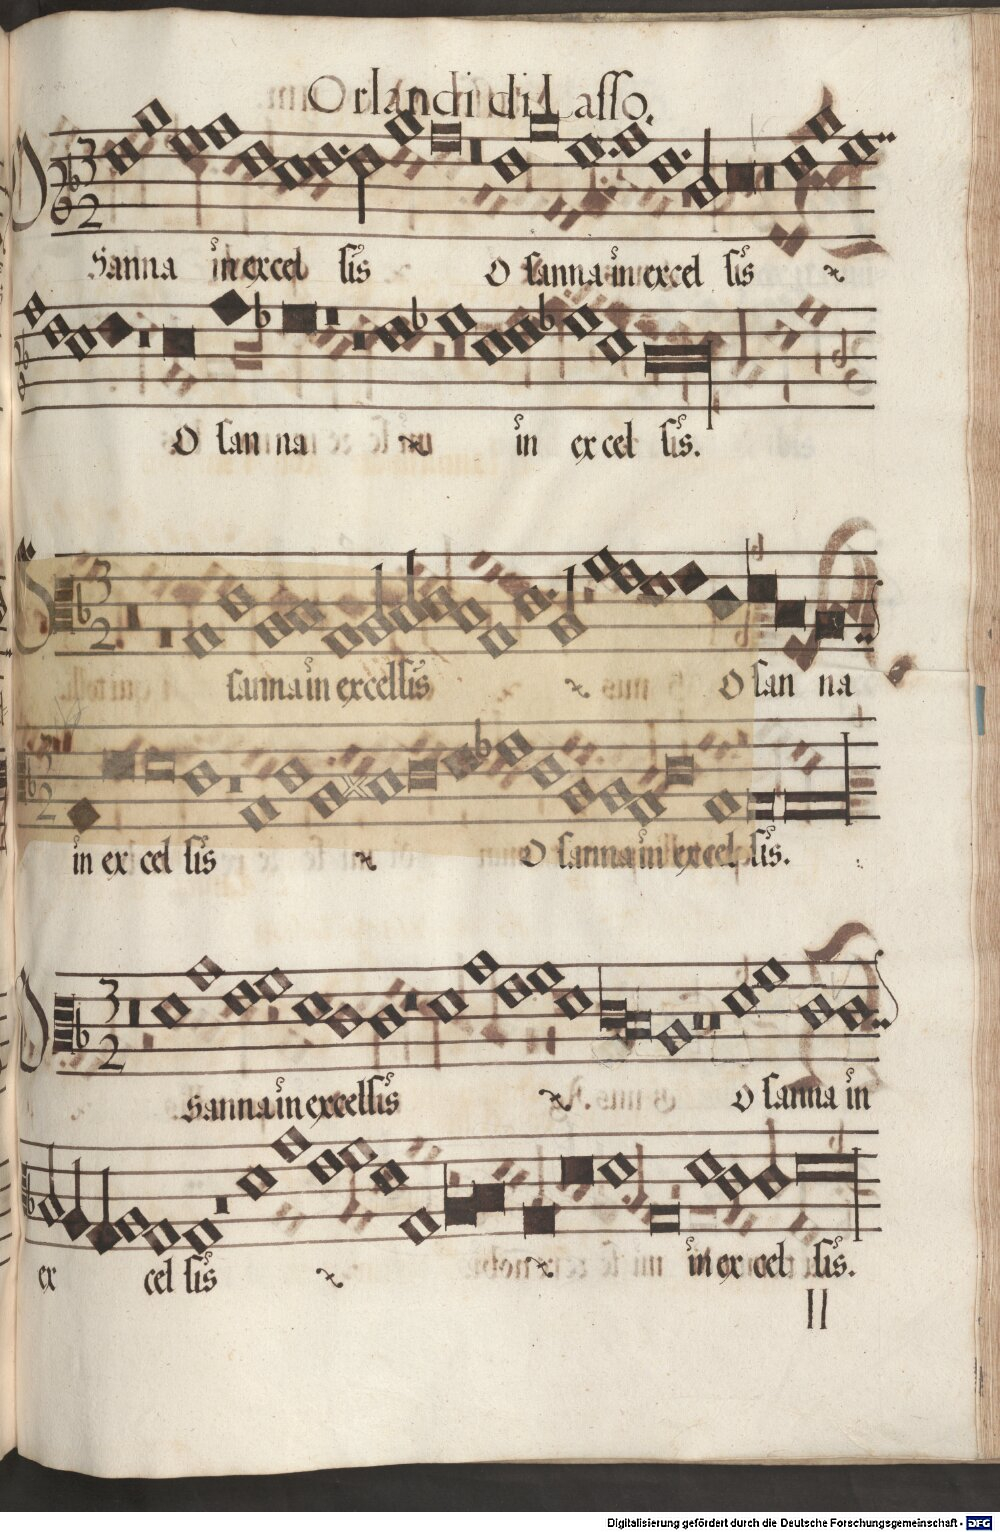 Orlandi di Lasso.
Sanna in excel sis O sanna in excel sis
O san na in ex cel sis.
sanna in excelsis O san na
in ex cel sis O sanna in excel sis.
Sanna in excelsis O sanna in
ex cel sis in ex cel sis.
II
Digitalisierung gefördert durch die Deutsche Forschungsgemeinschaft - DFG